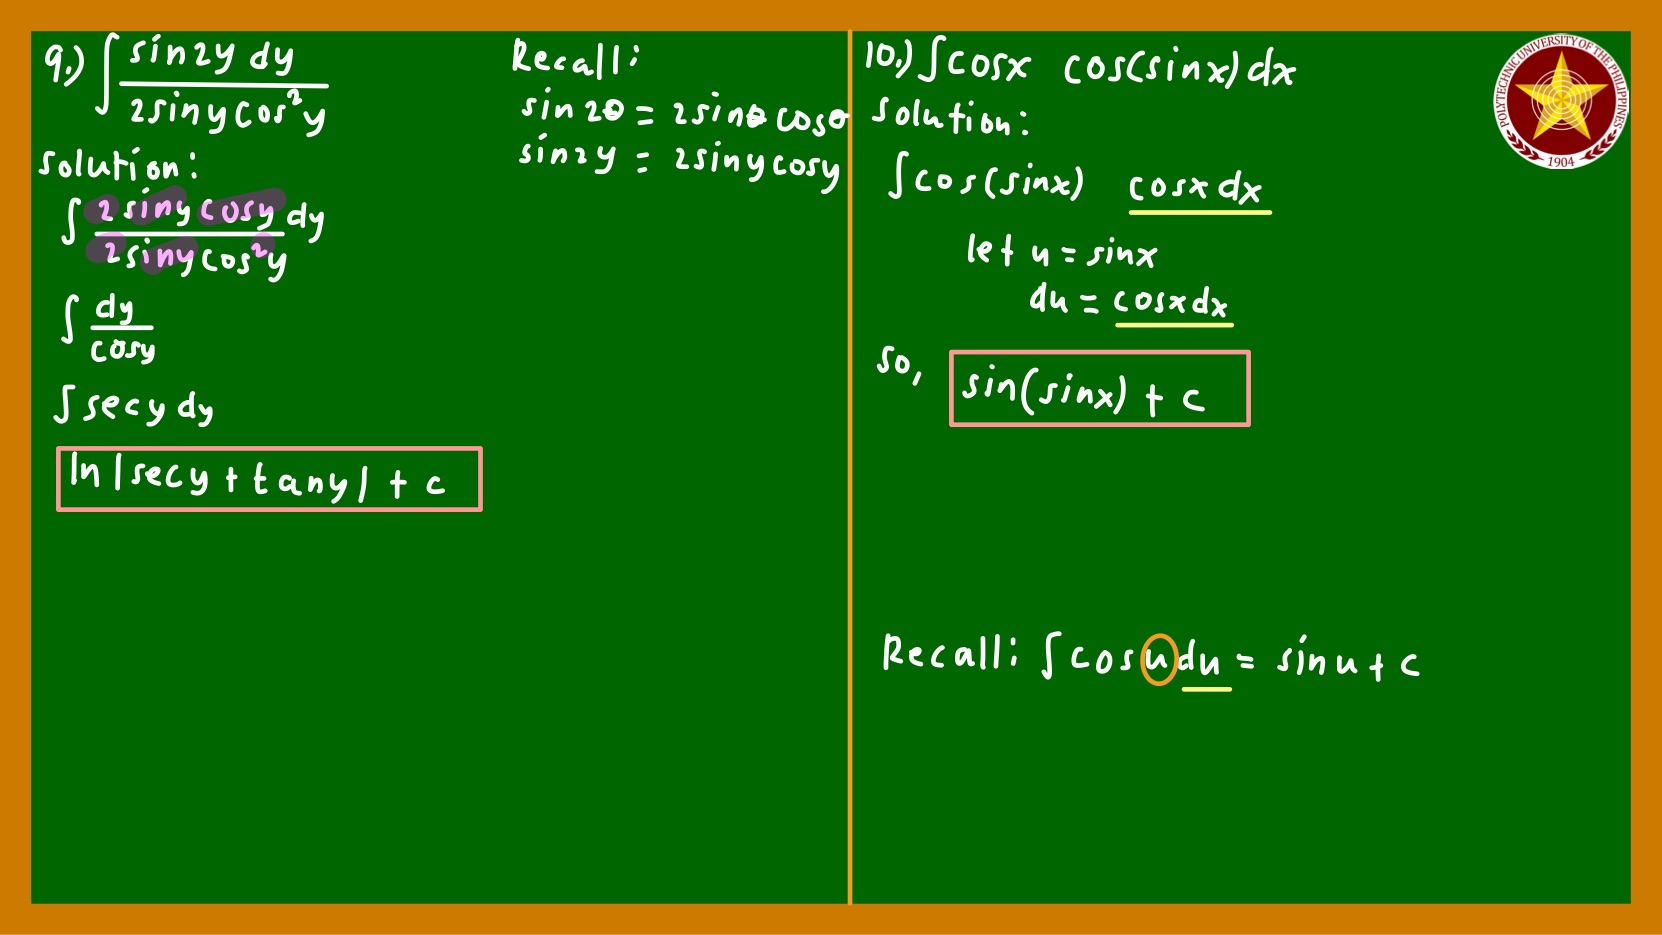 9.) ∫ sin2y dy / 2sinycos²y
solution:
∫ 2sinycosy dy / 2sinycos²y
∫ dy / cosy
∫secydy
ln|secy + tany| + c
Recall:
sin2θ = 2sinθcosθ
sin2y = 2sinycosy
10.) ∫cosx cos(sinx)dx
solution:
∫cos(sinx) cosxdx
let u = sinx
du = cosxdx
so, sin(sinx) + c
Recall: ∫cosudu = sinu + c
POLYTECHNIC UNIVERSITY OF THE PHILIPPINES
1904